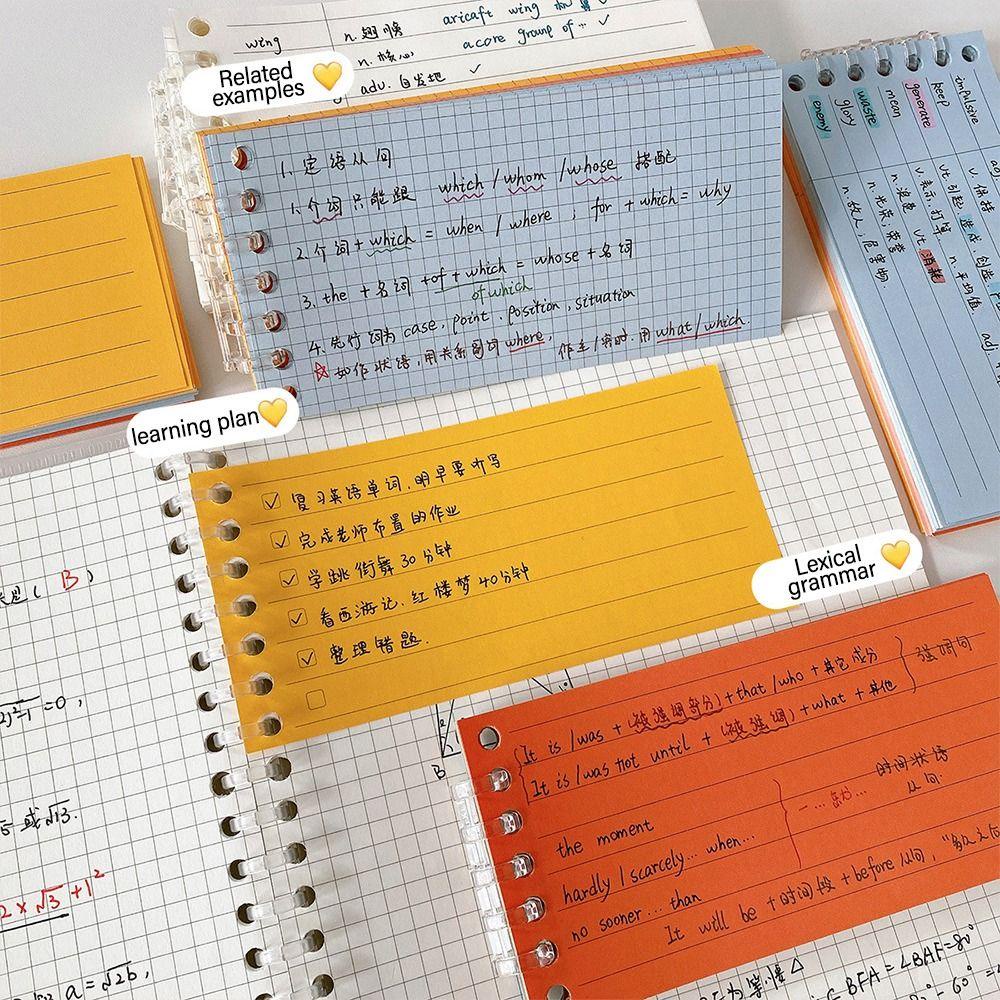 wing n. 翅膀 aricaft wing
n. 核心 a core group of … ✓
adv. 自发地 ✓
Related
examples
1. 定语从句
1. 介词只能跟 which / whom / whose 搭配
2. 介词 + which = when / where ; for + which = why
3. the + 名词 + of + which = whose + 名词
of which
4. 先行词为 case, point, position, situation
☆ 如作状语,用关系副词 where, 作主/宾时.用 what/which.
impulsive adj.
keep v. 保持
generate vt. 引起, 造成 创造
mean v. 表示, 打算. n. 平均值 adj.
waste n. 浪费 vt. 消耗
glory n. 光荣; 荣誉
enemy n. 敌人, 危害物
learning plan
☑ 复习英语单词,明早要听写
☑ 完成老师布置的作业
☑ 学跳街舞30分钟
☑ 看西游记、红楼梦40分钟
☑ 整理错题.
Lexical
grammar
It is / was + (被强调部分) + that / who + 其它成分
强调句
It is / was not until + (被强调) + what + 其他
the moment
hardly / scarcely … when …
no sooner … than
一 … 就 …
时间状语
从句
It will be + 时间段 + before 从句,
是( B )
=0,
或√13.
2×√3+1²
a=√2b,
B
为等腰△
BFA = ∠BAF=80°